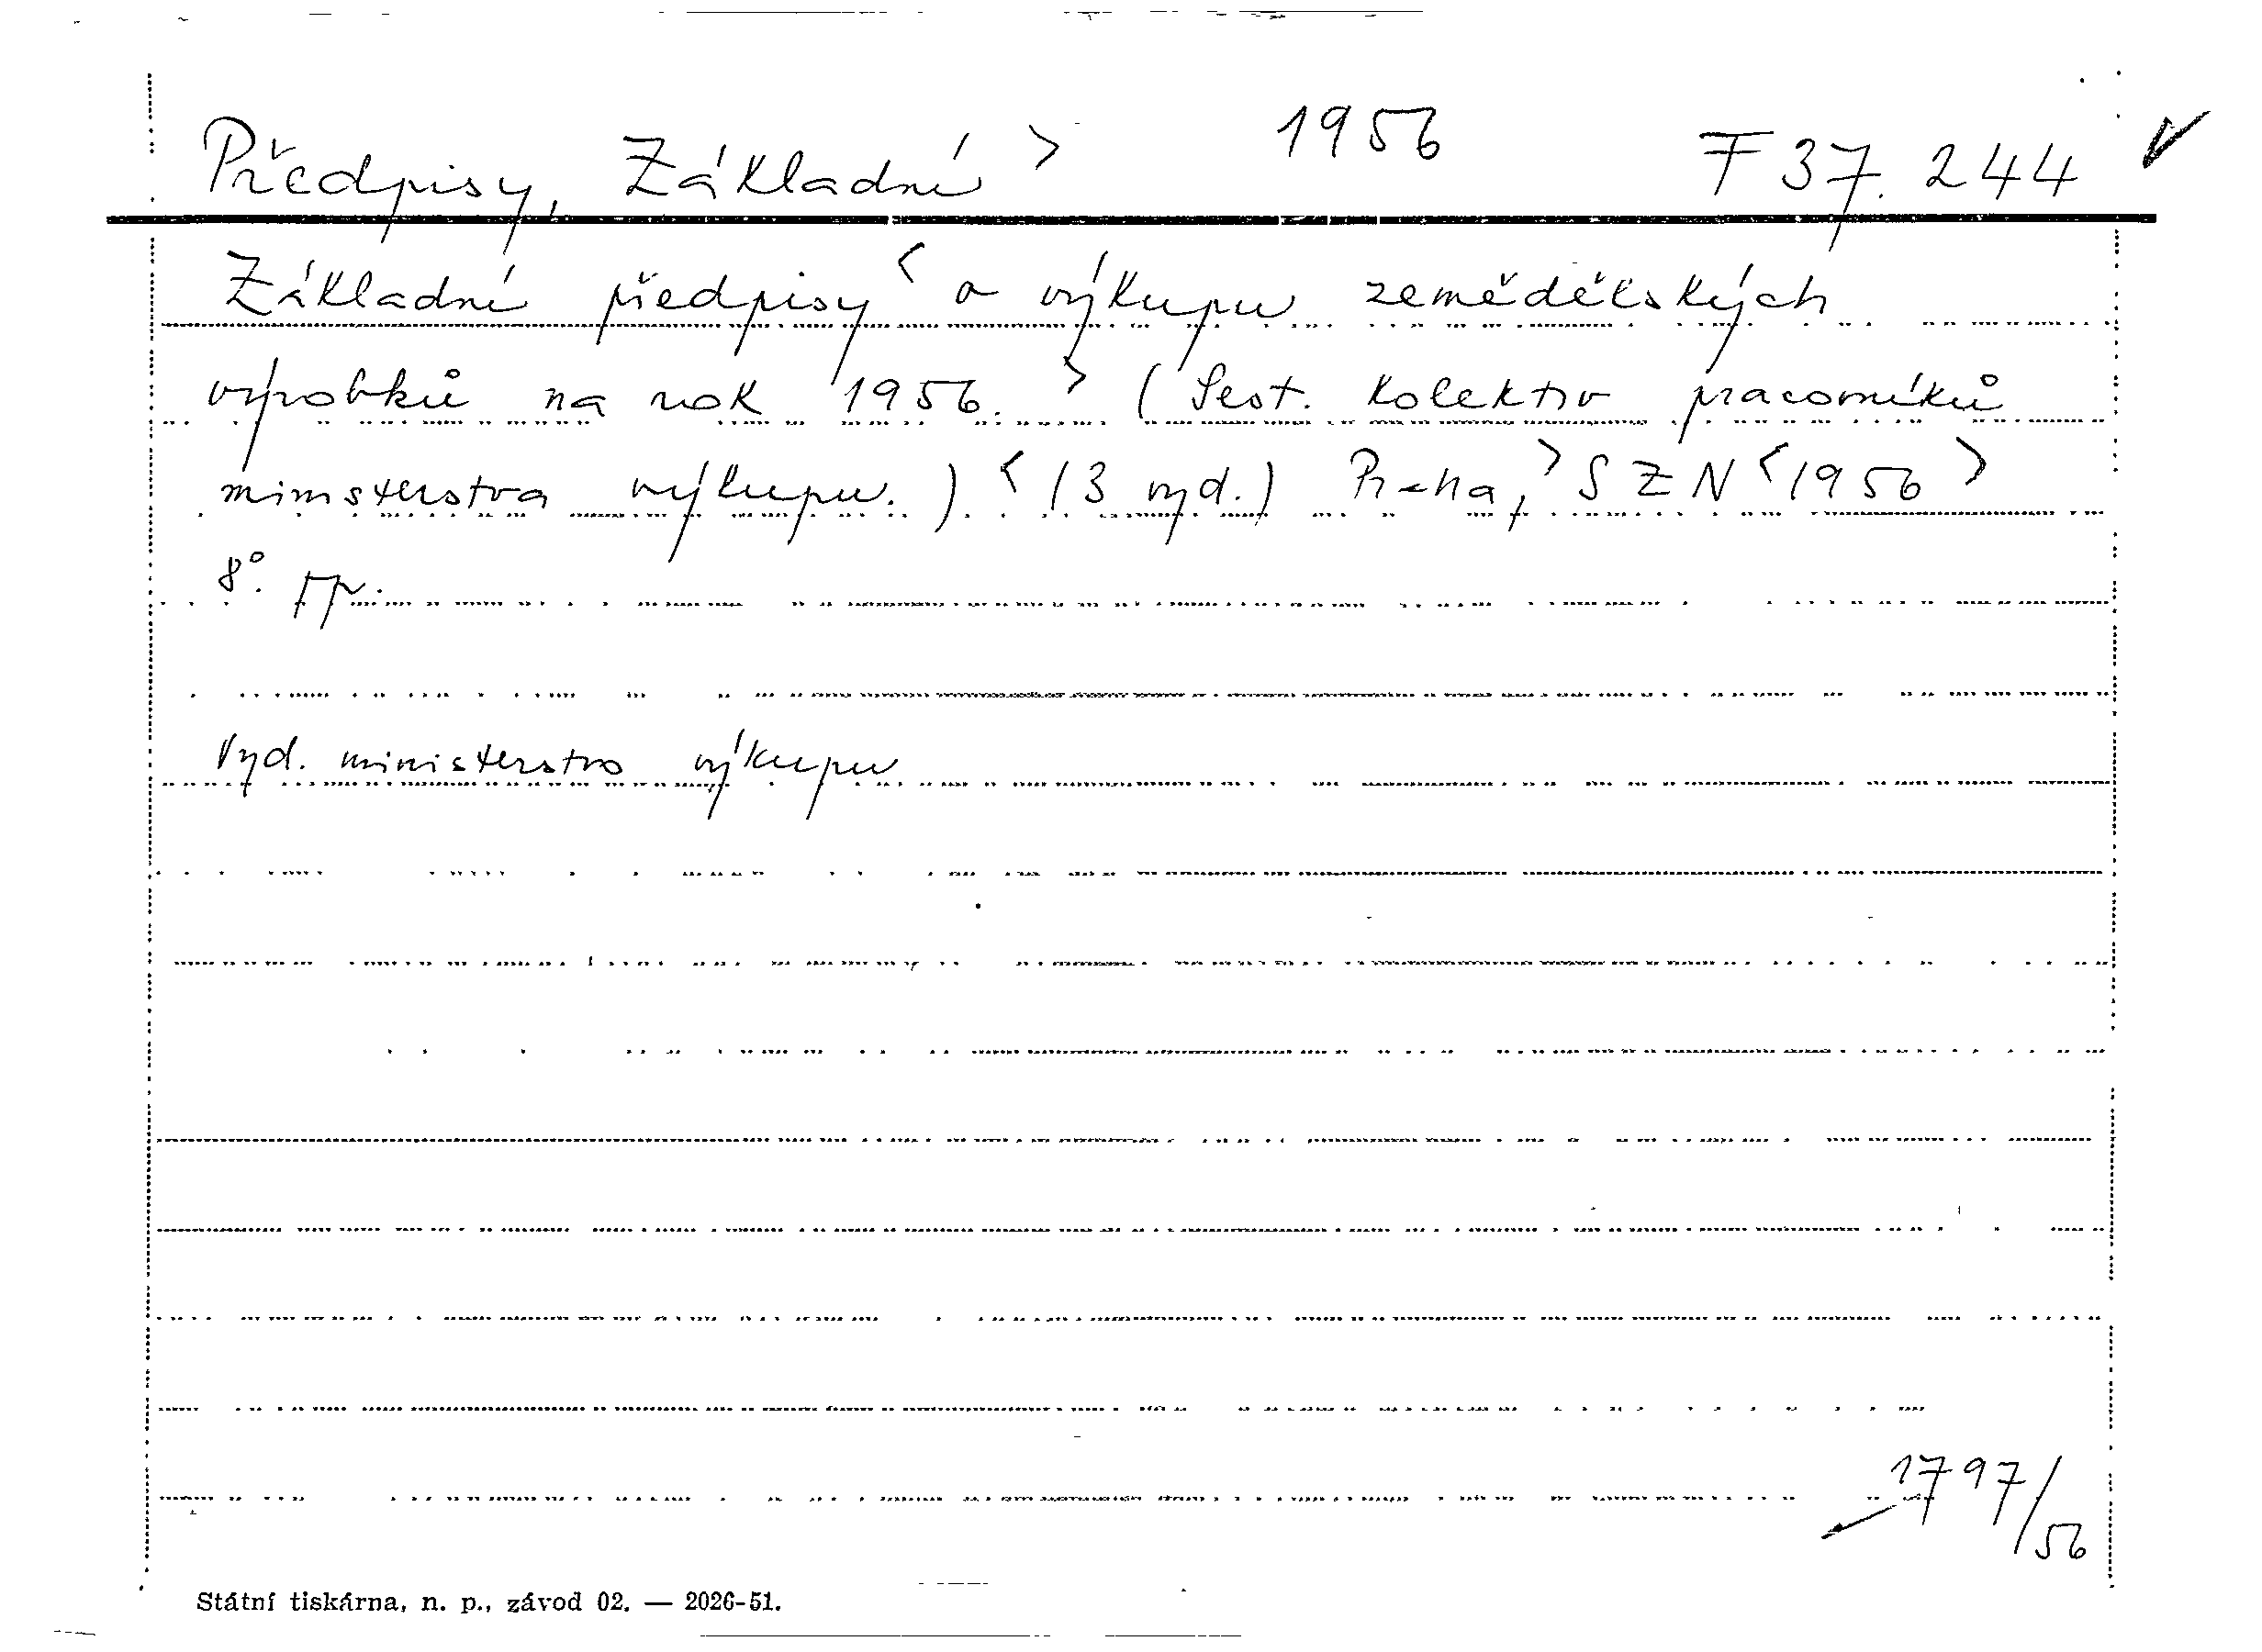 Předpisy, Základní > 1956 F 37.244 ✓
Základní předpisy < o výkupu zemědělských
výrobků na rok 1956. > (Sest. kolektiv pracovníků
ministerstva výkupu.) < (3 vyd.) Praha, > SZN < 1956 >
8°. pp.
Vyd. ministerstvo výkupu
1797/56
Státní tiskárna, n. p., závod 02. — 2026-51.